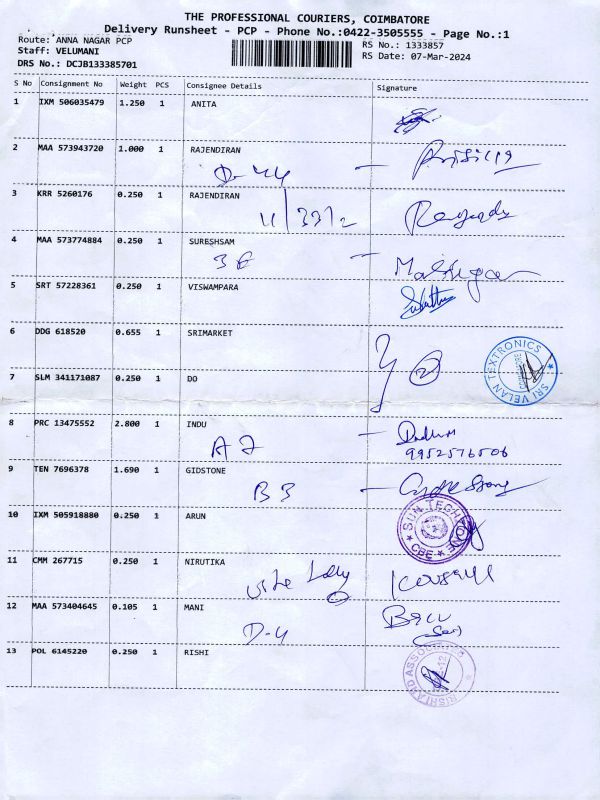 THE PROFESSIONAL COURIERS, COIMBATORE
Delivery Runsheet - PCP - Phone No.:0422-3505555 - Page No.:1
Route: ANNA NAGAR PCP RS No.: 1333857
Staff: VELUMANI RS Date: 07-Mar-2024
DRS No.: DCJB133385701
S No Consignment No Weight PCS Consignee Details Signature
1 IXM 506035479 1.250 1 ANITA
2 MAA 573943720 1.000 1 RAJENDIRAN
D-44
3 KRR 5260176 0.250 1 RAJENDIRAN
4 MAA 573774884 0.250 1 SURESHSAM
3E
5 SRT 57228361 0.250 1 VISWAMPARA
6 DDG 618520 0.655 1 SRIMARKET
SRI VELAN TEXTRONICS
COIMBATORE
7 SLM 341171087 0.250 1 DO
8 PRC 13475552 2.800 1 INDU
A7
9952576506
9 TEN 7696378 1.690 1 GIDSTONE
B3
10 IXM 505918880 0.250 1 ARUN
SUN TECH
CBE
11 CMM 267715 0.250 1 NIRUTIKA
12 MAA 573404645 0.105 1 MANI
D-4
13 POL 6145220 0.250 1 RISHI